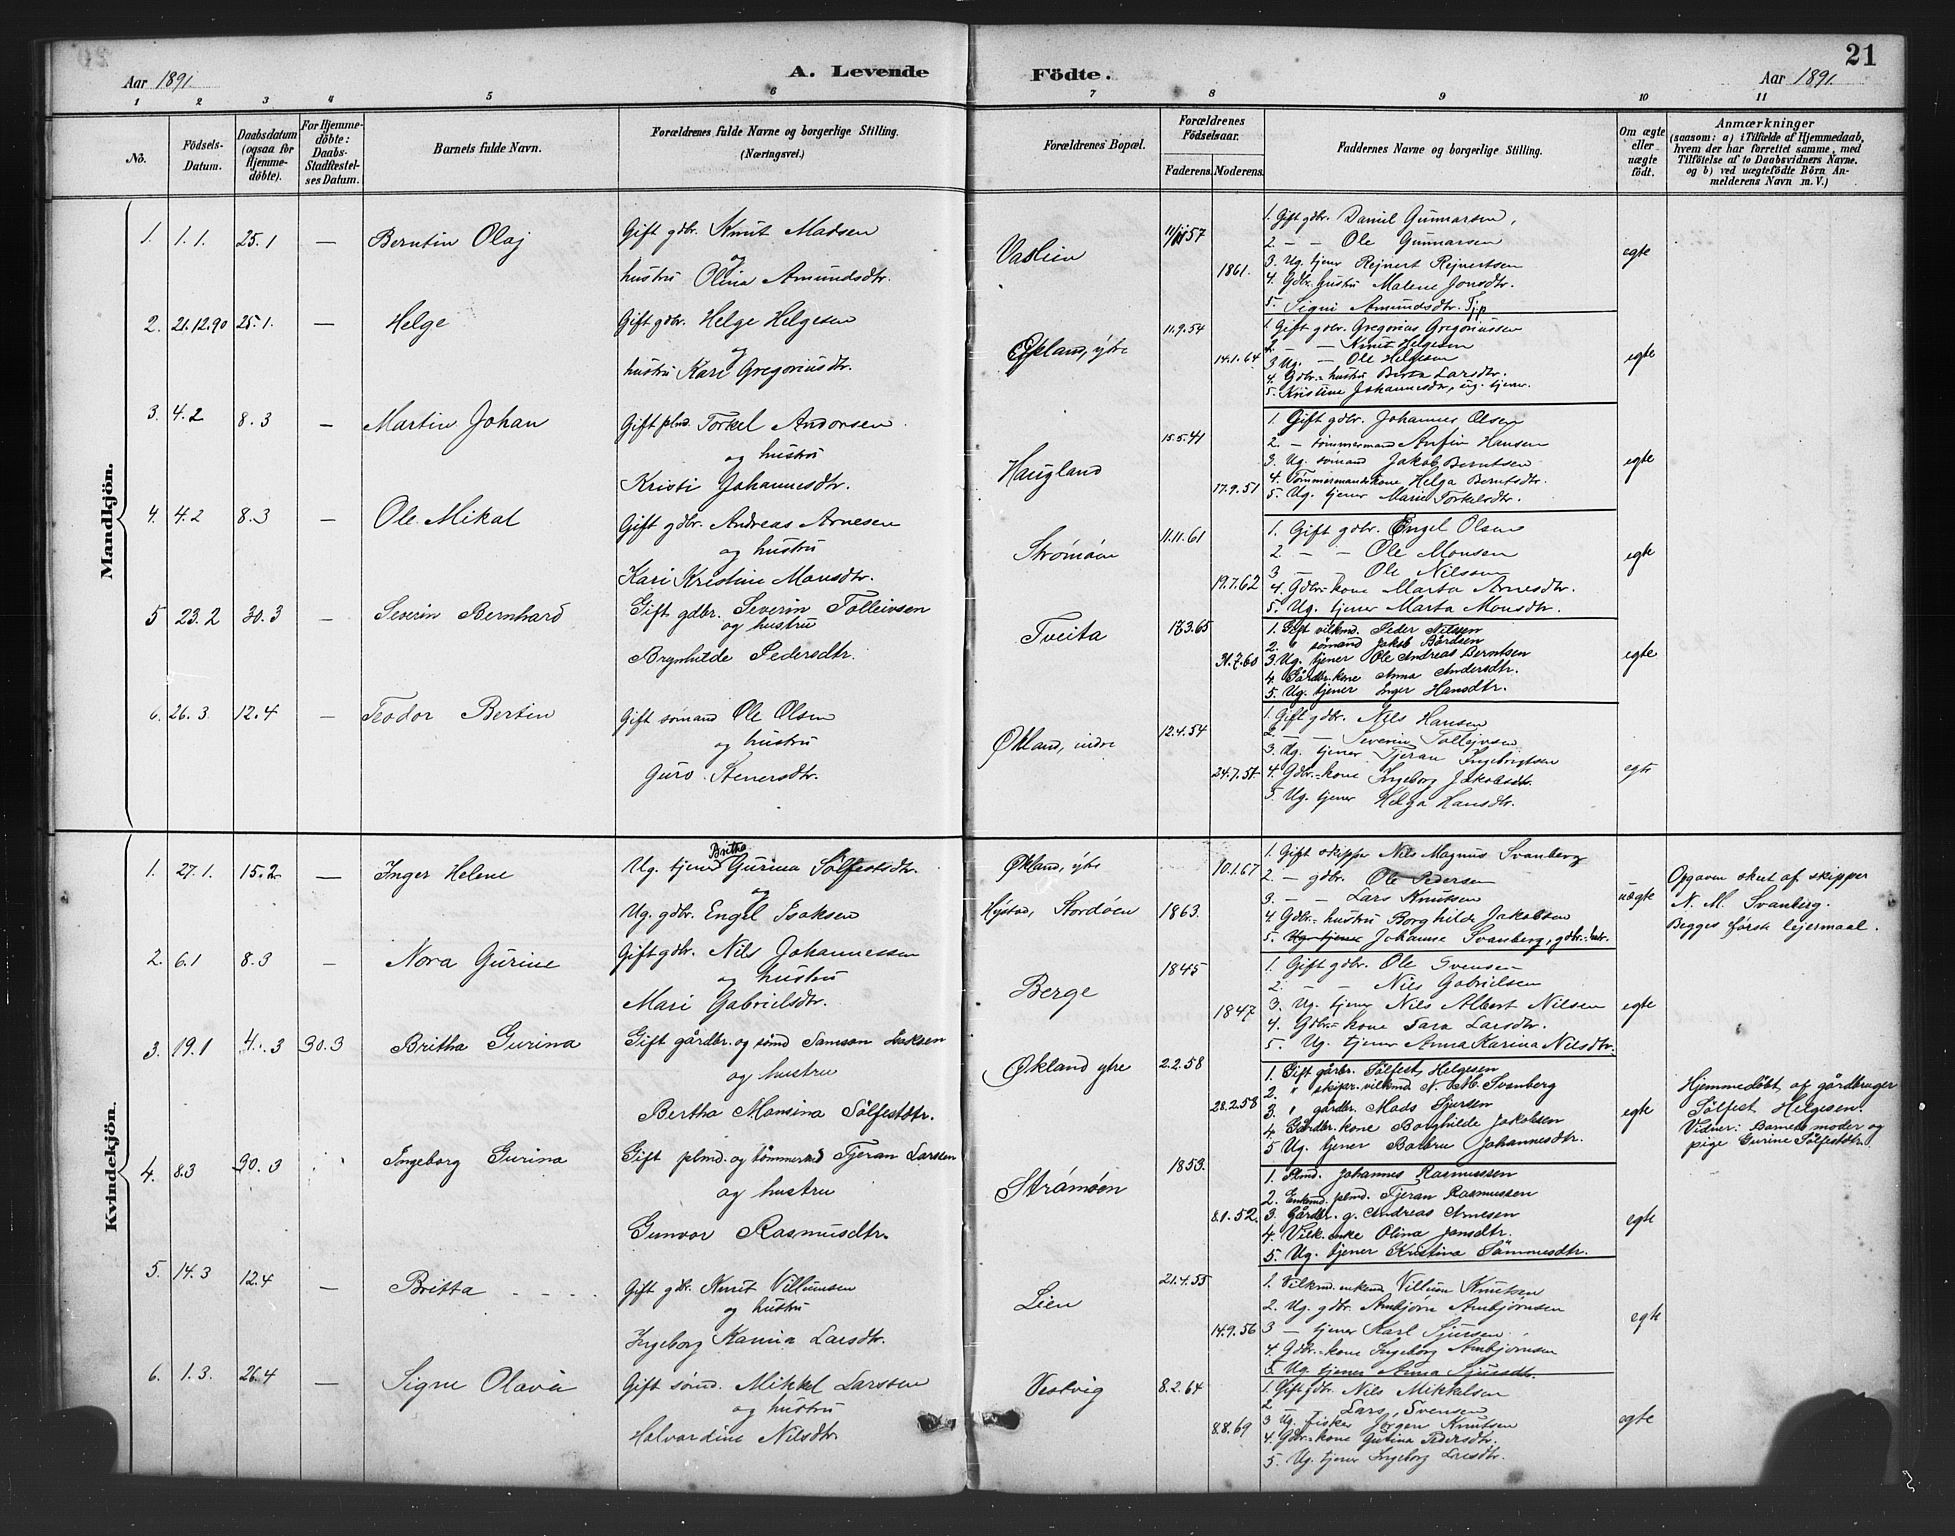 Aar 1891.
A. Levende Födte.
21
Aar 1891.
1 2 3 4 5 6 7 8 9 10 11
No.
Födsels-Datum.
Daabsdatum (ogsaa for Hjemme-döbte).
For Hjemme-döbte: Daabs-Stadfæstel-ses Datum.
Barnets fulde Navn.
Forældrenes fulde Navne og borgerlige Stilling.
(Næringsvei.)
Forældrenes Bopæl.
Forældrenes Födselsaar.
Faderens. Moderens.
Faddernes Navne og borgerlige Stilling.
Om ægte eller uægte födt.
Anmærkninger
(saasom: a) i Tilfælde af Hjemmedaab,
hvem der har forrettet samme, med
Tilföielse af to Daabsvidners Navne.
og b) ved uægtefödte Börn An-
melderens Navn m. V.)
Mandkjön.
1. 1.1. 25.1 — Berntin Olaj
Gift gdbr. Knut Madsen
og
hustru Olina Amundsdtr.
Vadlien
11/11 57
1861.
1. Gift gdbr. Daniel Gunnarsen,
2 — — Ole Gunnarsen
3. Ug. tjener Rejnert Rejnertsen
4. Gdbr. hustru Malene Jonsdtr.
5. Signi Amundsdtr. Tjp
egte
2. 21.12.90 25.1. — Helge
Gift gdbr. Helge Helgesen
og
hustru Kari Gregoriusdtr.
Økland, ytre
11.9.54
14.1.64
1. Gift gdbr. Gregorius Gregoriussen
2. — — Knut Helgesen
3 Ug. — Ole Helgesen
4. Gdbr.-hustru Berta Larsdtr.
5. Kristine Johannesdtr, ug. tjener.
egte
3. 4.2 8.3 — Martin Johan
Gift plmd. Torkel Andorsen
og hustru
Kristi Johannesdtr.
Haugland
15.5.41
17.9.51
1. Gift gdbr. Johannes Olsen
2. — tømmermand Anfin Hansen
3. Ug. sømand Jakob Berntsen
4. Tømmermands kone Helga Berntsdtr.
5. Ug. tjener Marie Torkelsdtr.
egte
4. 4.2 8.3 — Ole Mikal
Gift gdbr. Andreas Arnesen
og hustru
Kari Kristine Monsdtr.
Strømøen
11.11.61
19.7.62
1. Gift gdbr. Engel Olsen
2 — — Ole Monsen
3 — — Ole Nilsen
4. Gdbr-kone Marta Arnesdtr.
5. Ug. tjener Marta Monsdtr.
egte
5 23.2 30.3 — Severin Bernhard
Gift gdbr. Severin Tolleivsen
og hustru
Brynhilde Pedersdtr.
Tveita
31.7.60
1. Gift vilkmd. Peder Nilssen
2. " sømand Jakob Bårdsen
3. Ug. tjener Ole Andreas Berntsen
4. Gårdbr. kone Anna Andersdtr.
5. Ug. tjener Inger Hansdtr.
egte
6. 26.3. 12.4 — Teodor Bertin
Gift sømand Ole Olsen
og hustru
Guro Stenersdtr.
Økland, indre
12.4.54
24.7.51
1. Gift gdbr. Nils Hansen
2 — — Severin Tollejvsen
3. Ug. tjener Tjeran Ingebrigtsen
4. Gdbr.-kone Ingeborg Jakobsdtr.
5. Ug. tjener Helga Hansdtr.
egte
Kvindekjön.
1. 27.1. 15.2 — Inger Helene
Britha
Ug. tjener Gurina Sölfestsdtr.
og
Ug. gdbr. Engel Isaksen
Økland, ytre
Hystad, Stordøen
1863.
10.1.67
1. Gift skipper Nils Magnus Svanberg
2 — gdbr. Ole Pedersen
3. — — Lars Knutsen
4. Gdbr.-hustru Borghilde Jakobsen
5. Ug. tjener Johanne Svanberg, gdbr.-hstr.
uægte
Opgaven skeet af skipper
N. M. Svanberg.
Begges første lejermaal.
2. 6.1 8.3 — Nora Gurine
Gift gdbr. Nils Johannessen
og hustru
Mari Gabrielsdtr.
Berge
1845
1847
1. Gift gdbr. Ole Svensen
2. — — Nils Gabrielsen
3. Ug. tjener Nils Albert Nilsen
4. Gdbr.-kone Sara Larsdtr.
5. Ug. tjener Anna Karina Nilsdtr.
egte
3. 19.1 4.3 30.3 Britha Gurina
Gift gårdbr. og sømd Samson Isaksen
og hustru
Bertha Mansina Sölfestdtr.
Økland ytre
2.2.58
28.2.58
1. Gift gårbr. Sölfest Helgesen
2. " skipr. vilkmd N. M. Svanberg
3. " gårdbr. Mads Sjursen
4. Gårdbr. kone Borghilde Jakobsen
5 Ug. tjener Barbru Johannesdtr.
egte
Hjemmedöbt af gårdbruger
Sölfest Helgesen.
Vidner: Barnets moder og
pige Gurine Sölfestdtr.
4. 8.3 30.3 Ingeborg Gurina
Gift plmd. og tömmermd Tjeran Larsen
og hustru
Gunvor Rasmusdtr.
Strömöen
1853.
8.1.52.
1. Plmd. Johannes Rasmussen
2. Enkemd. plmd. Tjeran Rasmussen
3. Gårdbr. g. Andreas Arnesen
4. Vilk. enke Olina Jansdtr.
5. Ug. tjener Kristina Sämmesdtr.
egte
5. 14.3 12.4 — Britta
Gift gdbr. Knut Villumsen
og hustru
Ingeborg Kamia Larsdtr.
Lien
21.4.55
14.9.56
1. Vilkmd. enkemd Villum Knutsen
2. Ug. gdbr. Ambjørn Ambjørnsen
3 — tjener Karl Sjursen
4. Gdbr.-kone Ingeborg Ambjørnsen
5. Ug. tjener Anna Sjursdtr.
egte
6. 1.3. 26.4 — Signe Olava
Gift sømd. Mikkel Larssen
og hustru
Halvardine Nilsdtr.
Vestvig
8.2.64
8.8.69
1. Gift gdbr. Nils Mikkelsen
2 — — Lars Svensen
3 Ug. fisker Jørgen Knutsen
4. Gdbr.-kone Gurina Pedersdtr.
5. Ug. tjener Ingeborg Larsdtr.
egte